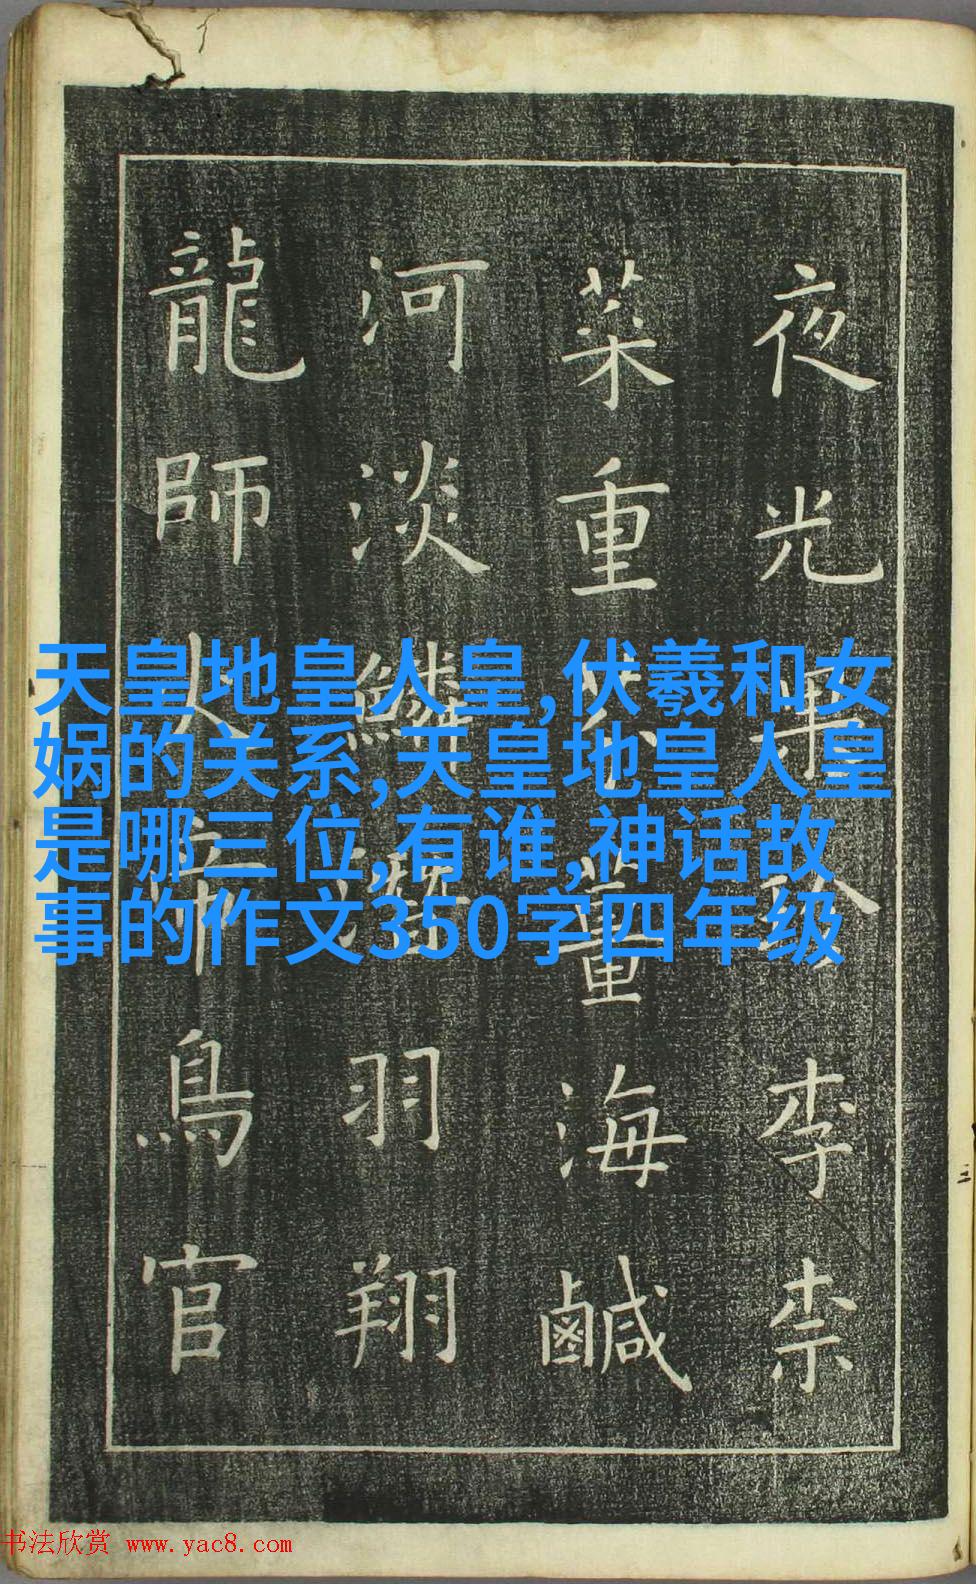 夜光果珍李柰
菜重芥薑海鹹
河淡鱗潛羽翔
龍師火帝鳥官
天皇地皇人皇,伏羲和女
娲的关系,天皇地皇人皇
是哪三位,有谁,神话故
事的作文350字四年级
书法欣赏 www.yac8.com